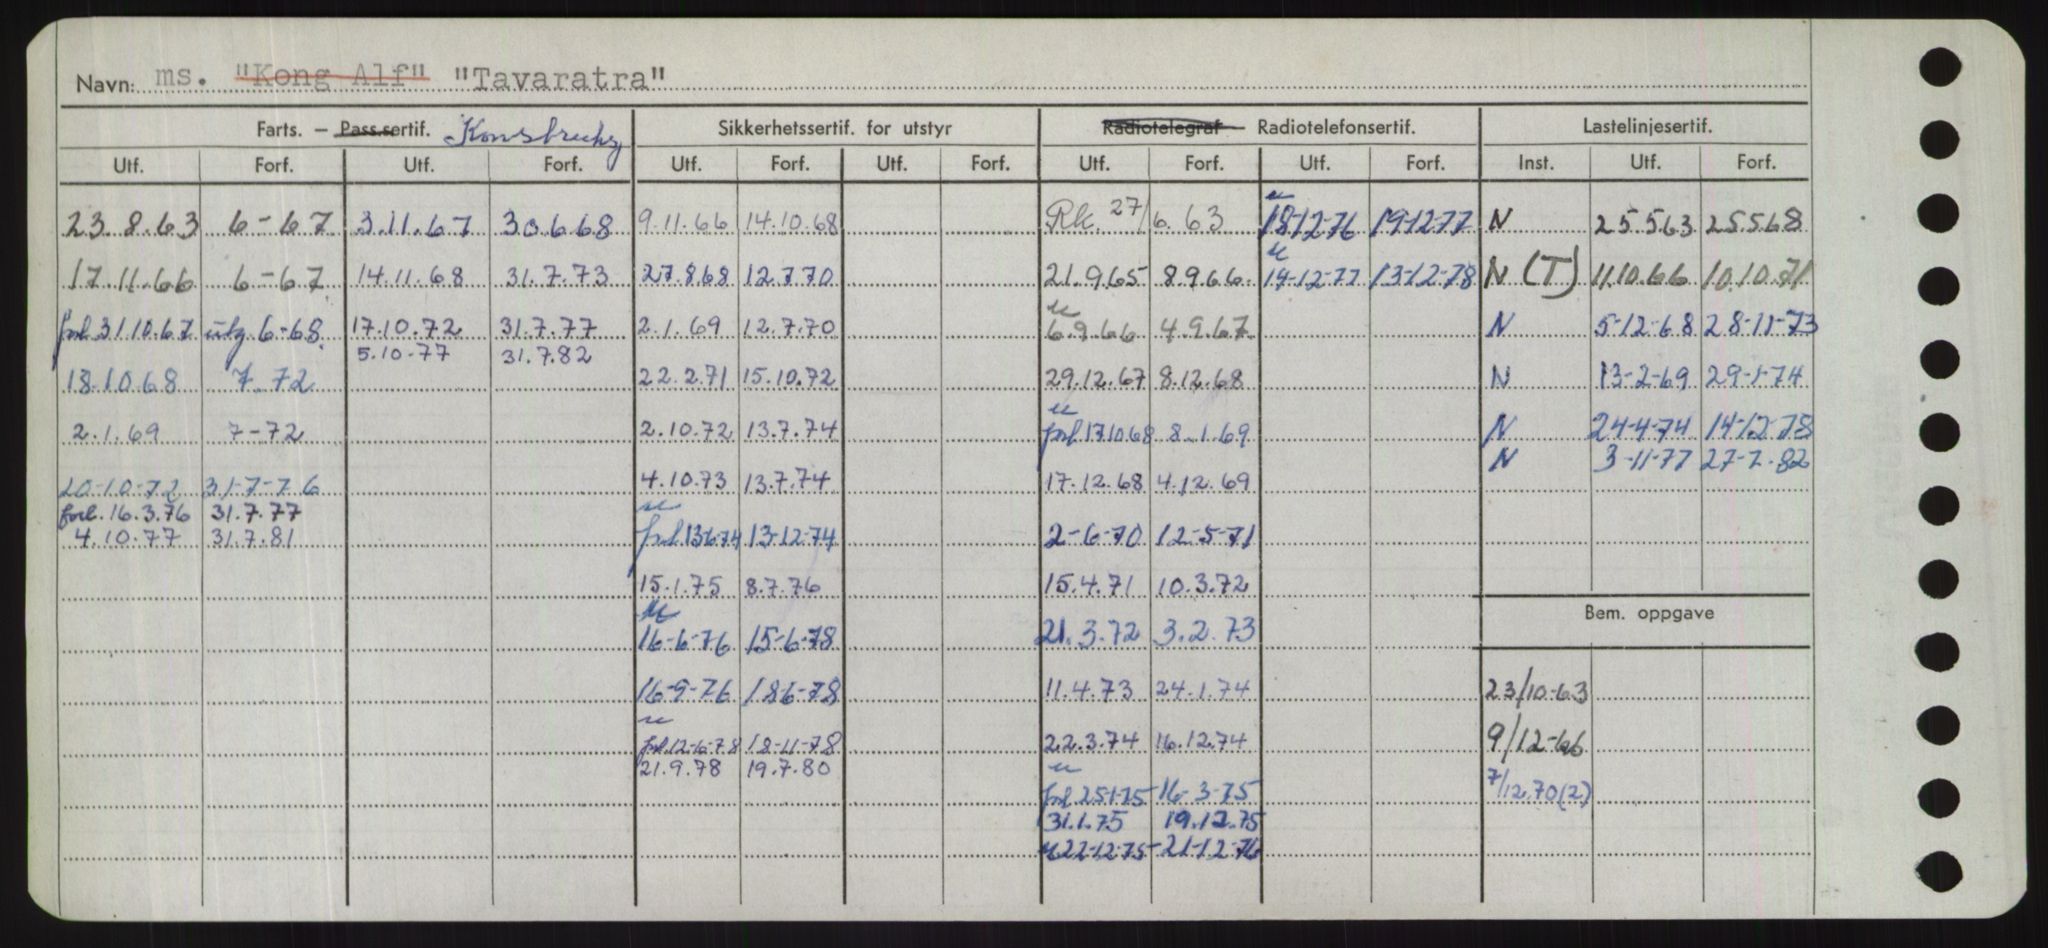 Navn: ms. "Kong Alf" "Tavaratra"
Farts. – Pass.sertif. Sikkerhetssertif. for utstyr Radiotelegraf – Radiotelefonsertif. Lastelinjesertif.
Utf. Forf. Utf. Forf. Utf. Forf. Utf. Forf. Utf. Forf. Utf. Forf. Inst. Utf. Forf.
23.8.63 6-67 3.11.67 30.6.68 9.11.66 14.10.68 Rk. 27/6.63 18-12-76 19-12-77 N 25.5.63 25.5.68
17.11.66 6-67 14.11.68 31.7.73 27.8.68 12.7.70 21.9.65 8.9.66 19-12-77 13-12-78 N (T) 11.10.66 10.10.71
forl 31.10.67 utg. 6-68 17.10.72 31.7.77 2.1.69 12.7.70 6.9.66 4.9.67 N 5-12-68 28-11-73
5.10-77 31.7.82
18.10.68 7.72 22.2.71 15.10.72 29.12.67 8.12.68 N 13-2-69 29-1-74
2.1.69 7-72 2.10.72 13.7.74 forl 17.10.68 8.1.69 N 24-4-74 14-12-78
N 3-11-77 27-7-82
20-10-72 31-7-76 4.10.73 13.7.74 17.12.68 4.12.69
forl. 16.3.76 31.7.77
4.10.77 31.7.81 forl 13-6-74 13-12-74 2-6-70 12-5-71
15.1.75 8.7.76 15.4.71 10.3.72
Bem. oppgave
16-6-76 15-6-78 21.3.72 3.2.73
16-9-76 18-6-78 11.4.73 24.1.74 23/10-63
forl 12-6-78 18-11-78 22.3.74 16.12.74 9/12-66
21.9.78 19.7.80
forl 25-1-75 16-3-75 7/12.70(2)
31.1.75 19.12.75
22-12-75 21-12-76